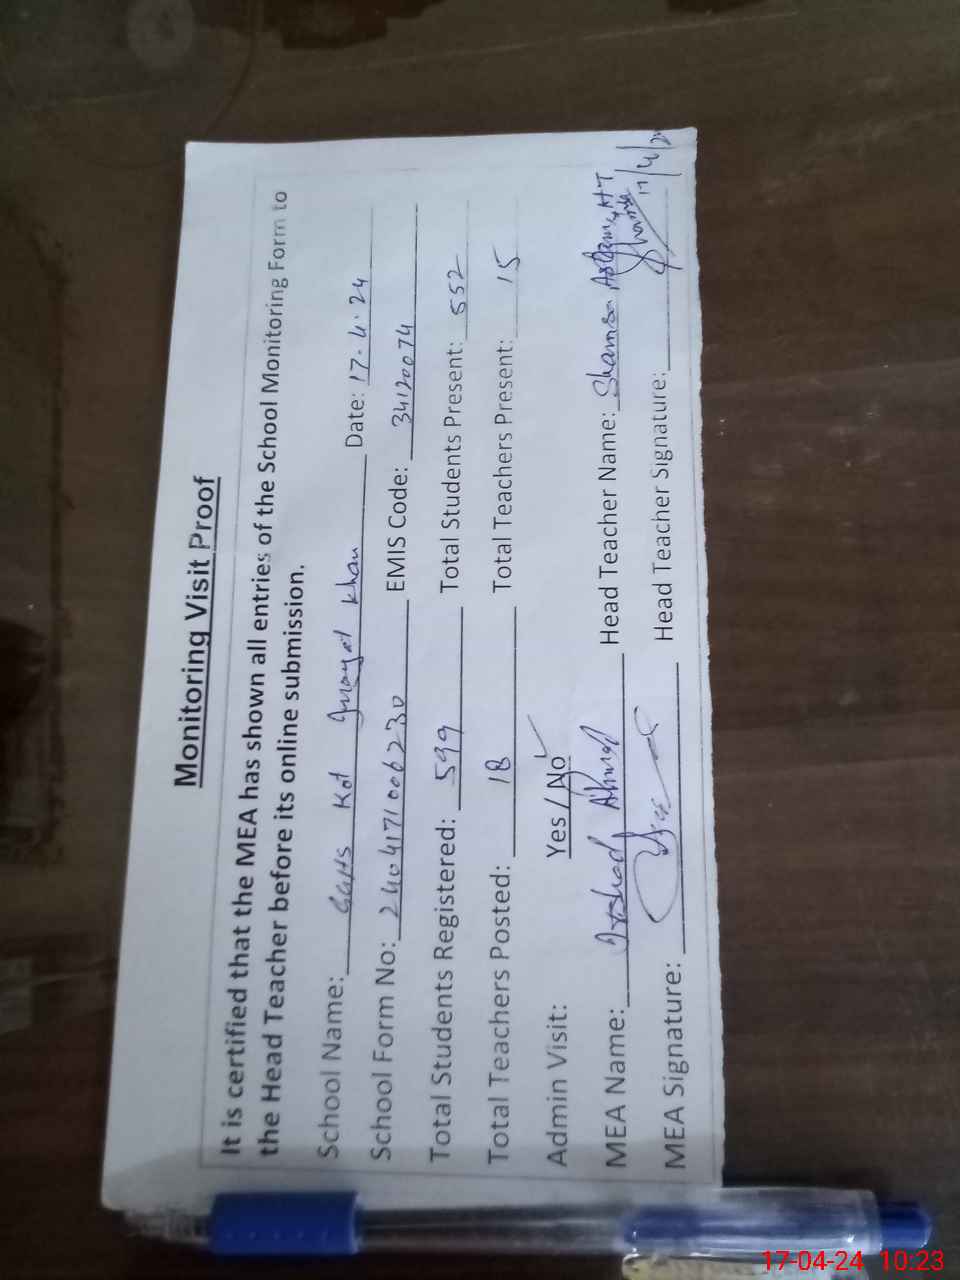 Monitoring Visit Proof
It is certified that the MEA has shown all entries of the School Monitoring Form to
the Head Teacher before its online submission.
School Name: GGHS Kot Inayat Khan Date: 17.4.24
School Form No: 2404171006230 EMIS Code: 34120074
Total Students Registered: 599 Total Students Present: 552
Total Teachers Posted: 18 Total Teachers Present: 15
Admin Visit: Yes / No
MEA Name: Irshad Ahmad Head Teacher Name: Shamsa
MEA Signature: Head Teacher Signature: 17/4/24
17-04-24 10:23